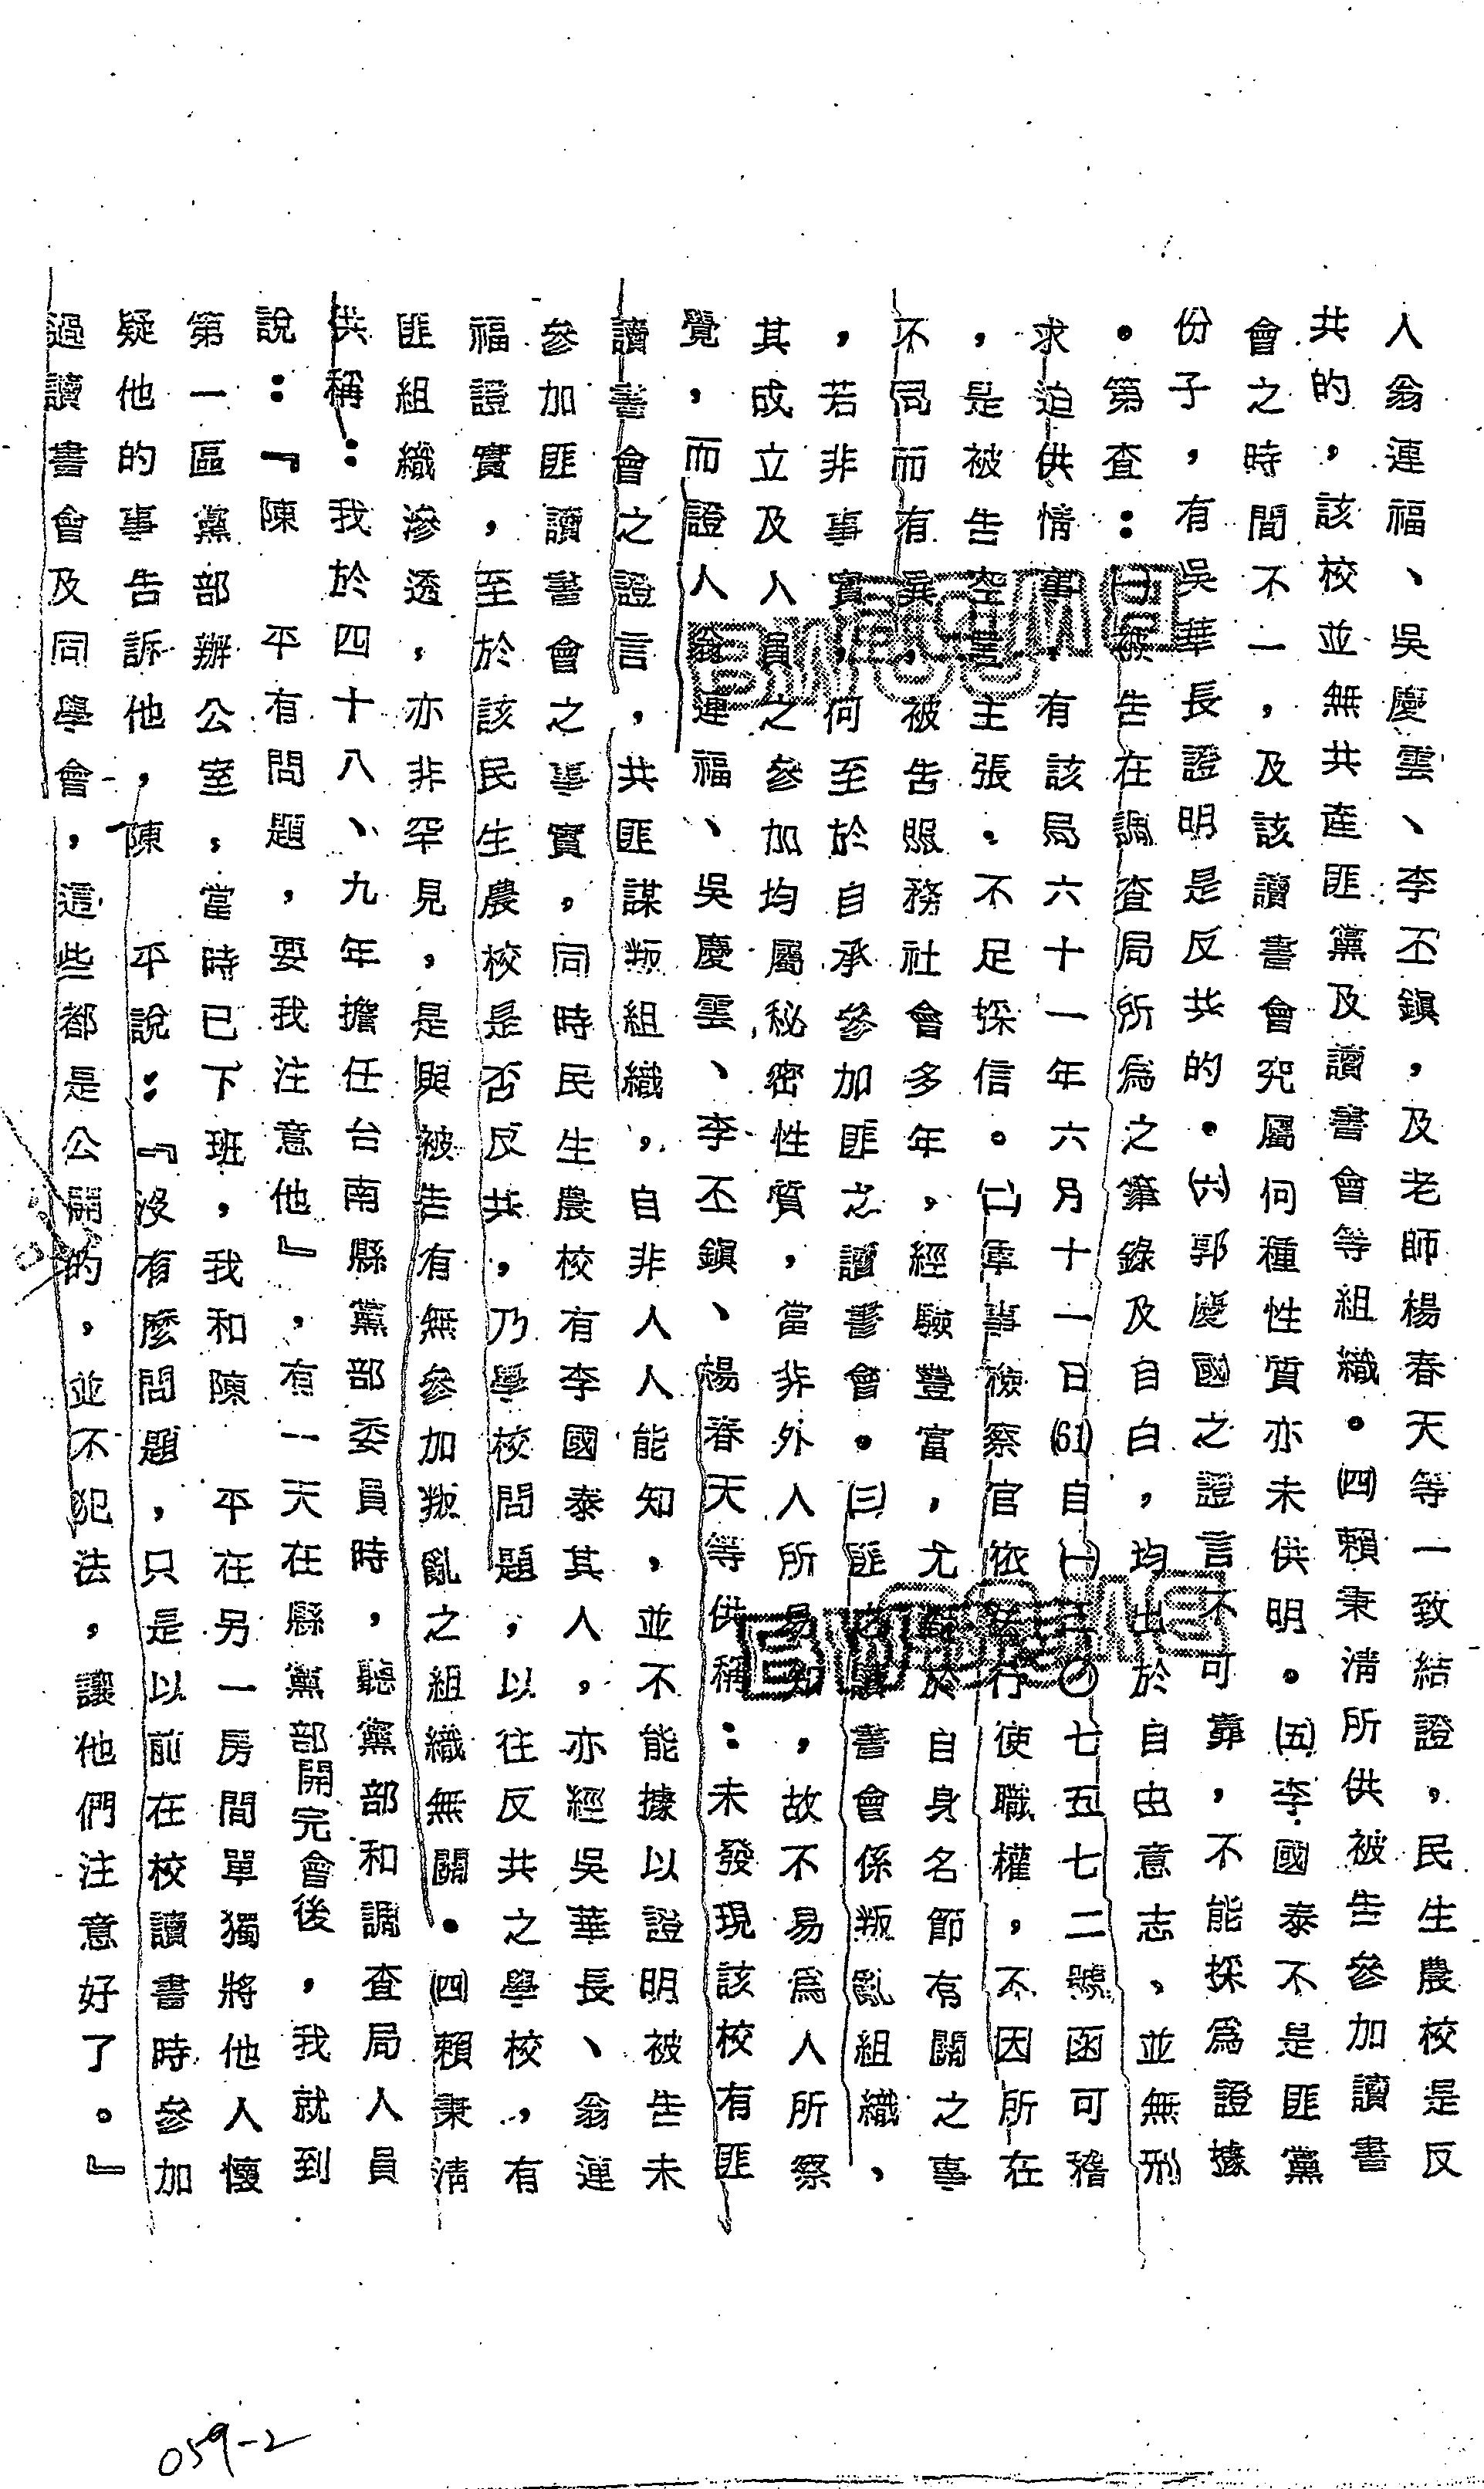 人翁連福、吳慶雲、李丕鎭，及老師楊春天等一致結證，民生農校是反
共的，該校並無共產匪黨及讀書會等組織。㈣賴秉清所供被告參加讀書
會之時間不一，及該讀書會究屬何種性質亦未供明。㈤李國泰不是匪黨
份子，有吳華長證明是反共的。㈥郭慶國之證言不可靠，不能採爲證據
。第查：㈠被告在調查局所爲之筆錄及自白，均出於自由意志、並無刑
求迫供情事，有該局六十一年六月十一日(61)自㈠七五七七二號函可稽
，是被告空言主張。不足採信。㈡軍事檢察官依法行使職權，不因所在
不同而有異，被告服務社會多年，經驗豐富，尤於自身名節有關之事
，若非事實，何至於自承參加匪之讀書會。㈢匪之讀書會係叛亂組織、
其成立及人員之參加均屬秘密性質，當非外人所易知，故不易爲人所察
覺，而證人翁連福、吳慶雲、李丕鎭、楊春天等供稱：未發現該校有匪
讀書會之證言，共匪謀叛組織，自非人人能知，並不能據以證明被告未
參加匪讀書會之事實，同時民生農校有李國泰其人，亦經吳華長、翁連
福證實，至於該民生農校是否反共，乃學校問題，以往反共之學校，有
匪組織滲透，亦非罕見，是與被告有無參加叛亂之組織無關。㈣賴秉清
供稱：我於四十八、九年擔任台南縣黨部委員時，聽黨部和調查局人員
說：『陳 平有問題，要我注意他』，有一天在縣黨部開完會後，我就到
第一區黨部辦公室，當時已下班，我和陳 平在另一房間單獨將他人懷
疑他的事告訴他，陳 平說：『沒有麼問題，只是以前在校讀書時參加
過讀書會及同學會，這些都是公開的，並不犯法，讓他們注意好了。』
059-2